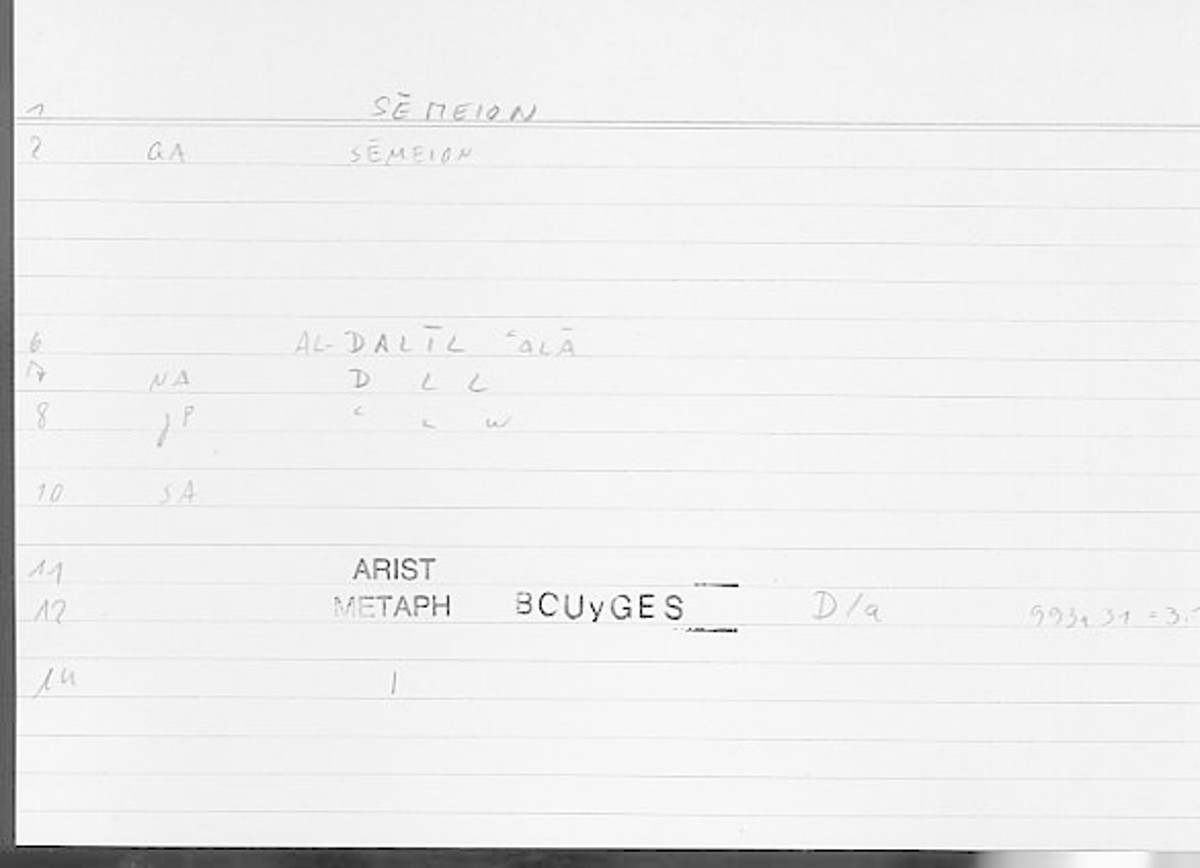 1 SĒMEION
2 GA SĒMEION
6 AL-DALĪL ʿALĀ
7 NA D L L
8 jP ʿ L W
10 SA
11 ARIST
12 METAPH BOUyGES D/a 993a 31 = 3.
14 1